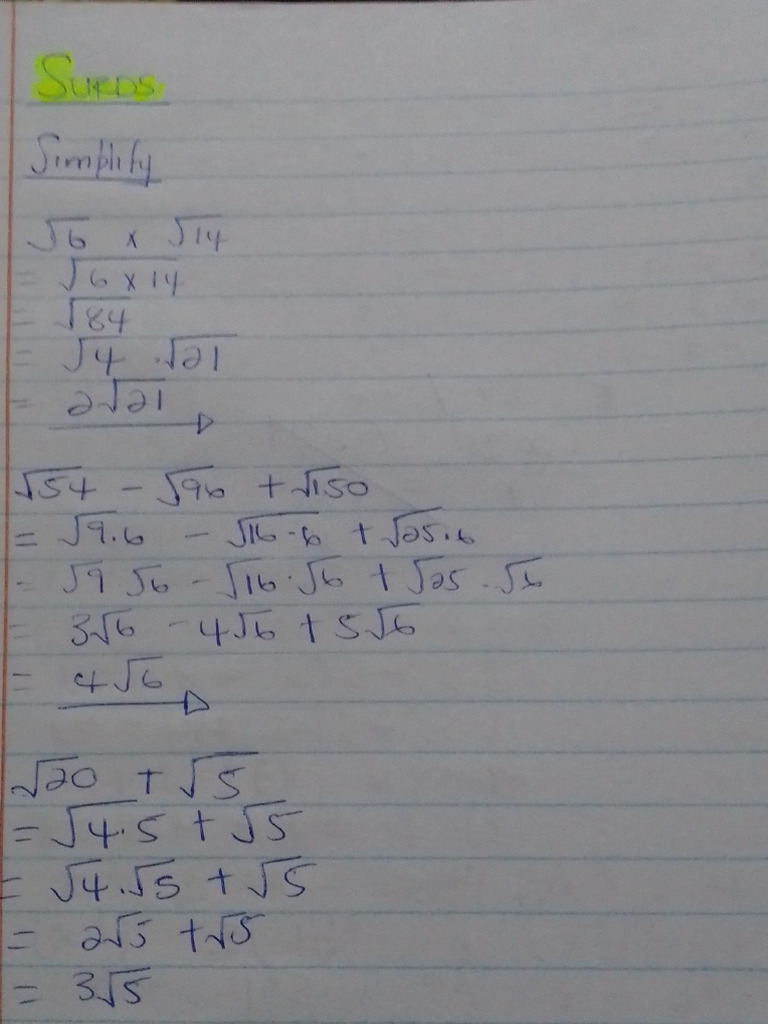 SURDS
Simplify
√6 × √14
= √6 × 14
= √84
= √4 · √21
= 2√21
√54 − √96 + √150
= √9·6 − √16·6 + √25·6
= √9 √6 − √16·√6 + √25·√6
= 3√6 − 4√6 + 5√6
= 4√6
√20 + √5
= √4·5 + √5
= √4·√5 + √5
= 2√5 + √5
= 3√5